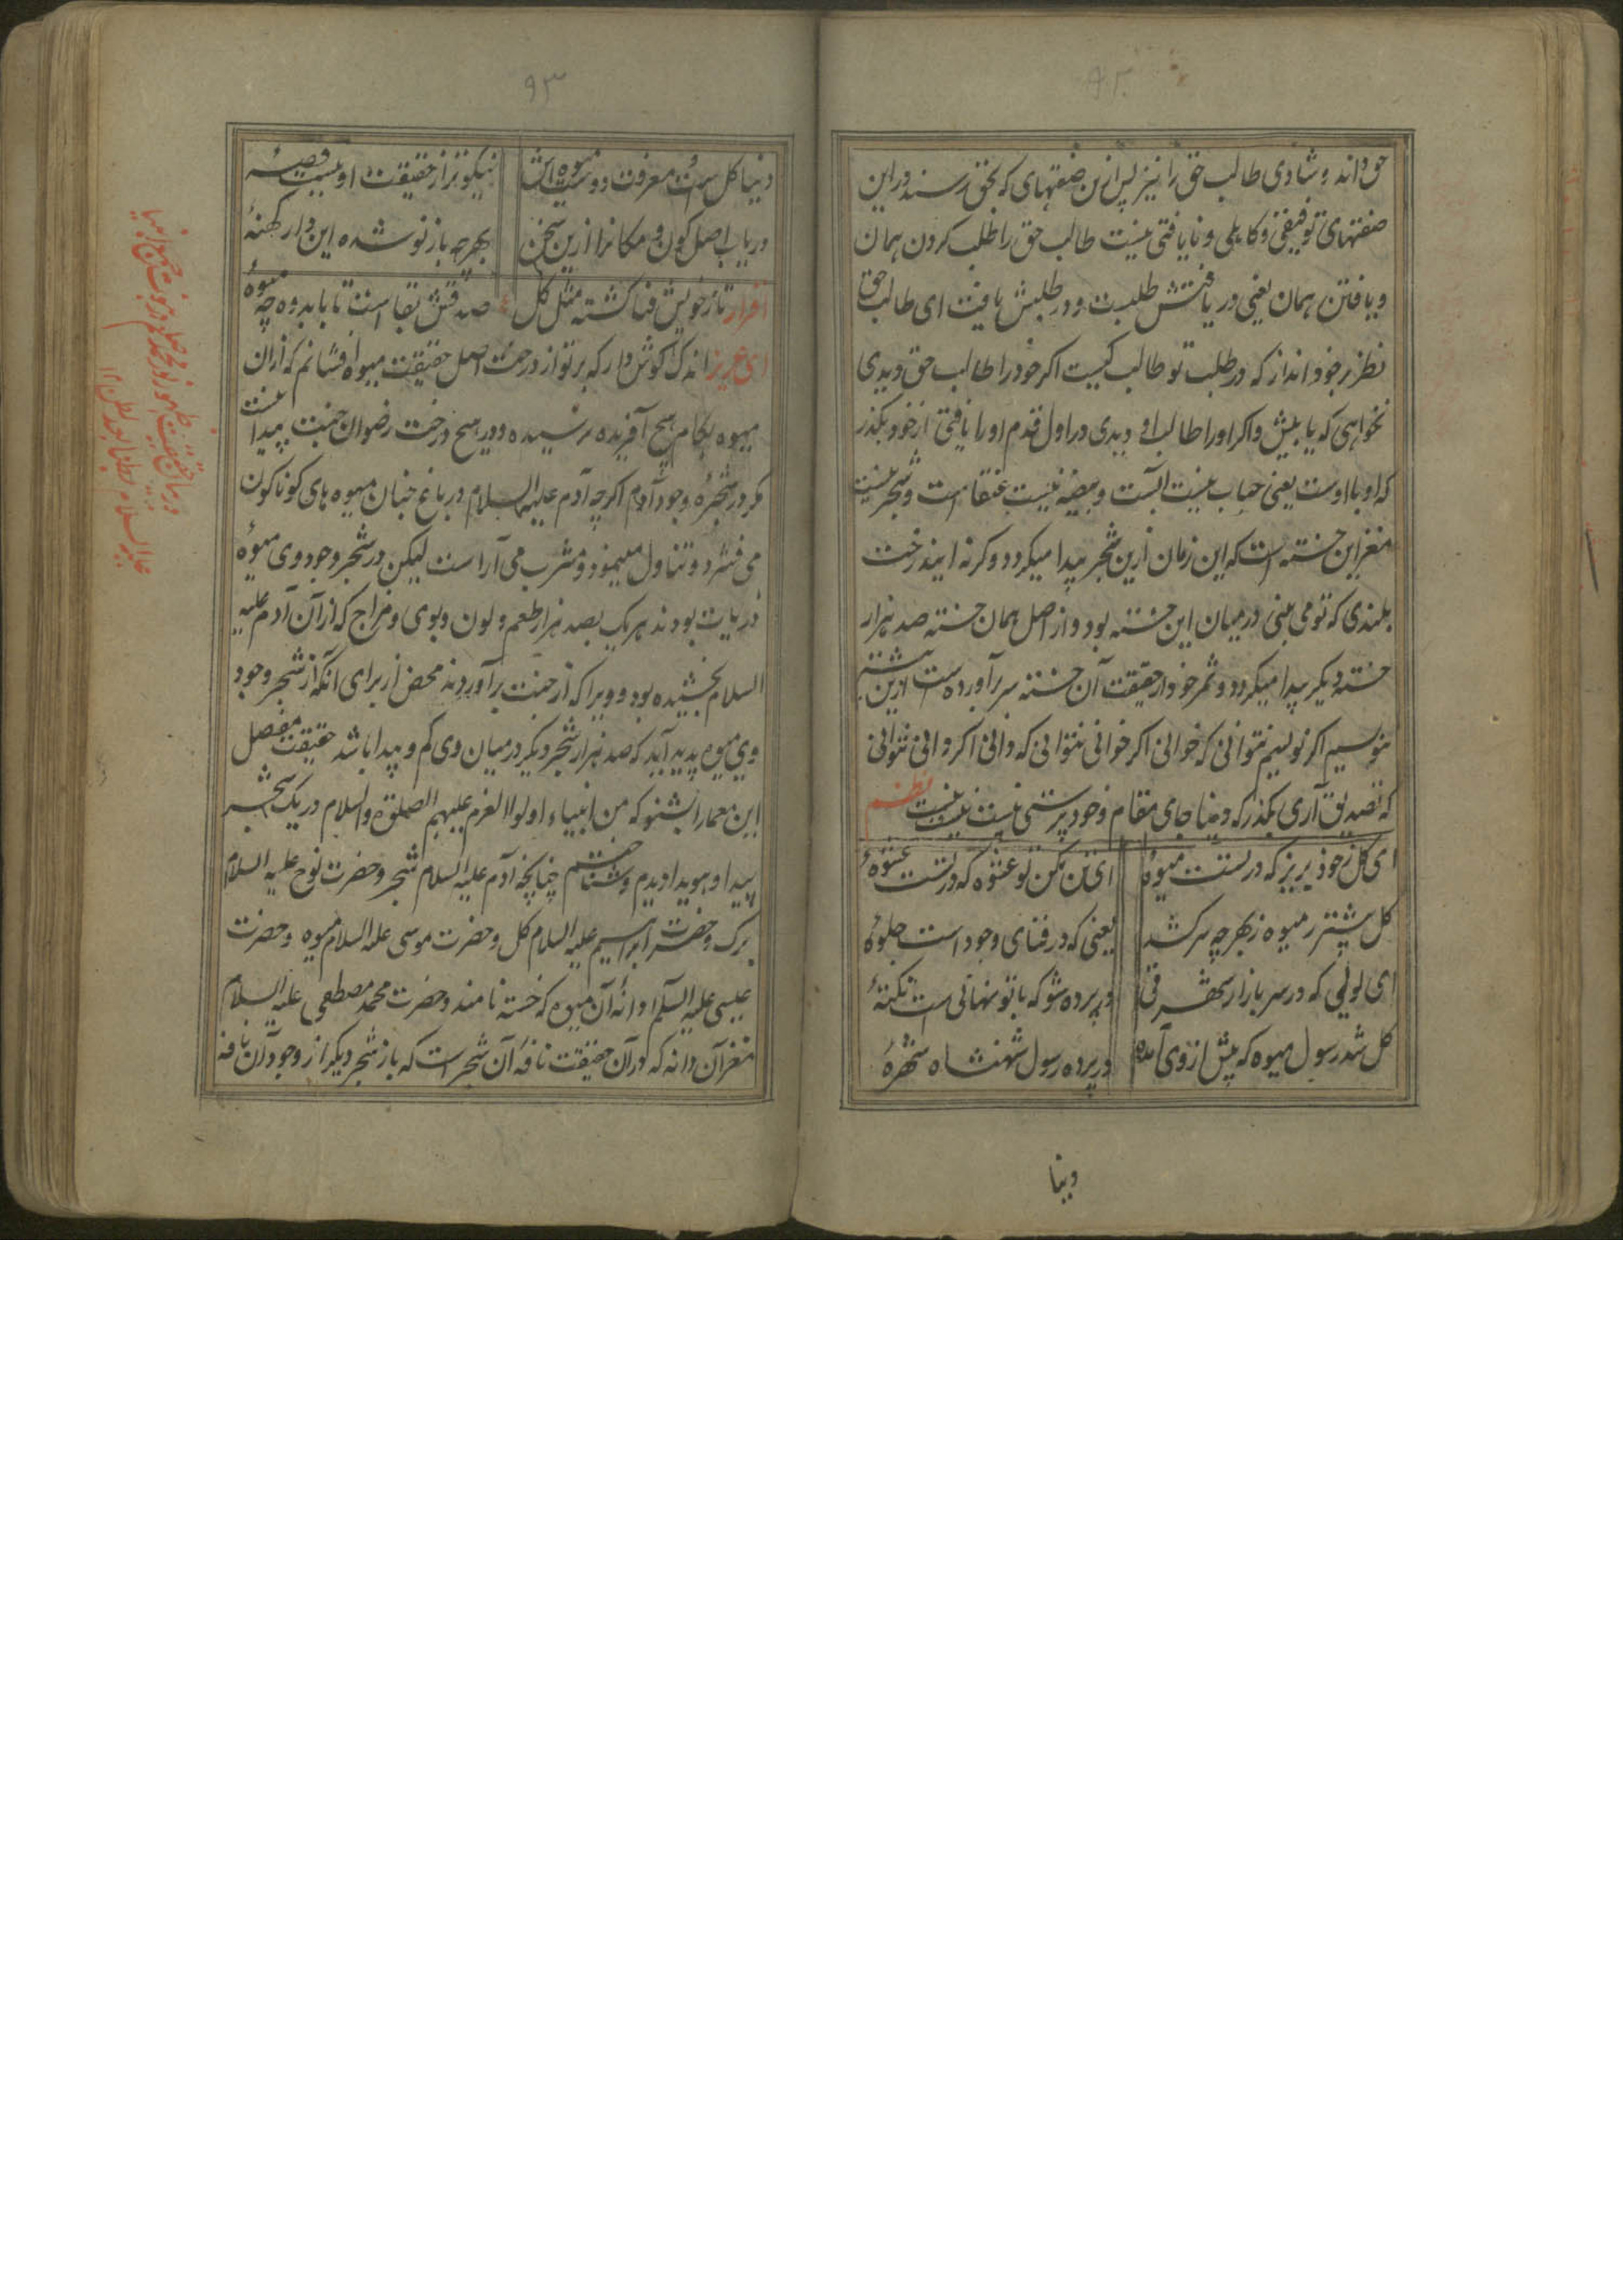 ۹۲
حق داند و شادی طالب حق را نیز پس ازین صفتهای که بحق رسند و راین
صفتهای توفیقی و کاهلی و نایافتی نیست طالب حق را طلب کردن همان
و یافتن همان یعنی در یافتنش طلبست و در طلبش یافت ای طالب حق
نظر بر خود انداز که در طلب تو طالب کیست اکر خود را طالب حق دیدی
نخواهی که یابیش و اکر او را طالب او دیدی در اول قدم او را یافتی از خود بکذر
که او با اوست یعنی حباب نیست آبست و بیضه نیست عنقا است و شجر نیست
مغز این خسته است که این زمان ازین شجر پیدا میکردد و کرنه ایندرخت
بلندی که تو می بینی در میان این خسته بود و از اصل همان خسته صد هزار
خسته دیکر پیدا میکردد و ثمر خود از حقیقت آن خسته سر برآورده است بیشتر ازین
ننویسم اکر نویسم نتوانی که خوانی اکر خوانی نتوانی که دانی اکر دانی نتوانی
که تصدیق آری بکذر که دنیا جای مقام وجود پرستی نیست نیست نیست نظم
ای کل ز خود بریز که در تست میوهٔ ای تن مکن تو عشوه که در تست عشوهٔ
کل پیشتر ز میوه ز بهر چه سر کشد یعنی که در فنای وجود است جلوهٔ
ای لولیی که در سر بازار شهر فی در پرده شو که با تو نهانی است نکتهٔ
کل شد رسول میوه که پیش از وی آمده در پرده رسول شهنشاه شهرهٔ
دنیا
۹۳
دنیا کل است معرفت دوست میوه اش نیکوتر از حقیقت او نیست قصهٔ
دریاب اصل کون و مکانرا ازین سخن بهر چه باز نو شده این دار کهنهٔ
افراد تا ز خویش فنا کشته مثل کل صدقش بقاست تا بابد وه چه میوهٔ
ای عزیز اندک کوش دار که بر تو از درخت اصل حقیقت میوه افشانم که از ان
میوه بکام هیچ آفریده نرسیده و در هیچ درخت رضوان جنت پیدا نیست
مکر در شجرهٔ وجود آدم اکرچه آدم علیه السلام در باغ جنان میوه های کوناکون
می فشرد و تناول مینمود و مشرب می آراست لیکن در شجر وجود وی میوهٔ
ذریات بودند هر یک بصد هزار طعم و لون و بوی و مزاج که از آن آدم علیه
السلام نچشیده بود و ویرا که از جنت برآوردند محض از برای آنکه از شجر وجود
وی میوه پدید آید که صد هزار شجر دیکر در میان وی کم و پیدا باشد حقیقت مفصل
این معما را بشنو که من انبیاء اولوا العزم علیهم الصلوة والسلام در یک شجر
پیدا و هویدا دیدم و شناختم چنانچه آدم علیه السلام شجر و حضرت نوح علیه السلام
برک و حضرت ابراهیم علیه السلام کل و حضرت موسی علیه السلام میوه و حضرت
عیسی علیه السلام دانه آن میوه که خسته نامند و حضرت محمد مصطفی علیه السلام
مغز آن دانه که در آن حقیقت نافه آن شجر است که باز شجر دیکر از وجود آن نافه